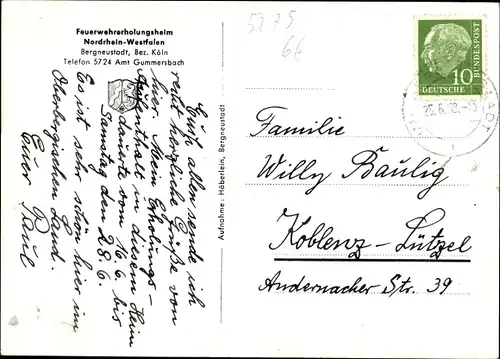 Feuerwehrerholungsheim
Nordrhein-Westfalen
Bergneustadt, Bez. Köln
Telefon 5724 Amt Gummersbach
Euch allen sende ich
recht herzliche Grüße von
hier. Mein Erholungs-
aufenthalt in diesem Heim
dauerte vom 16.6. bis
Samstag den 28.6.
Es ist sehr schön hier im
Oberbergischen Land.
Euer Paul
Aufnahme: Häberlein, Bergneustadt
5275
6€
10
DEUTSCHE
BUNDESPOST
25.6.
Familie
Willy Baulig
Koblenz-Lützel
Andernacher Str. 39